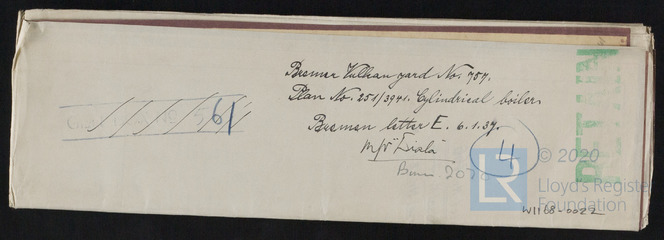 Bremer Vulkan yard No. 757.
Plan No. 251/3941. Cylindrical boiler.
Bremen letter E. 6.1.37.
M/V "Eisala"
4
61
RETAIN
LR
© 2020
Lloyd's Register
Foundation
W1168-0022